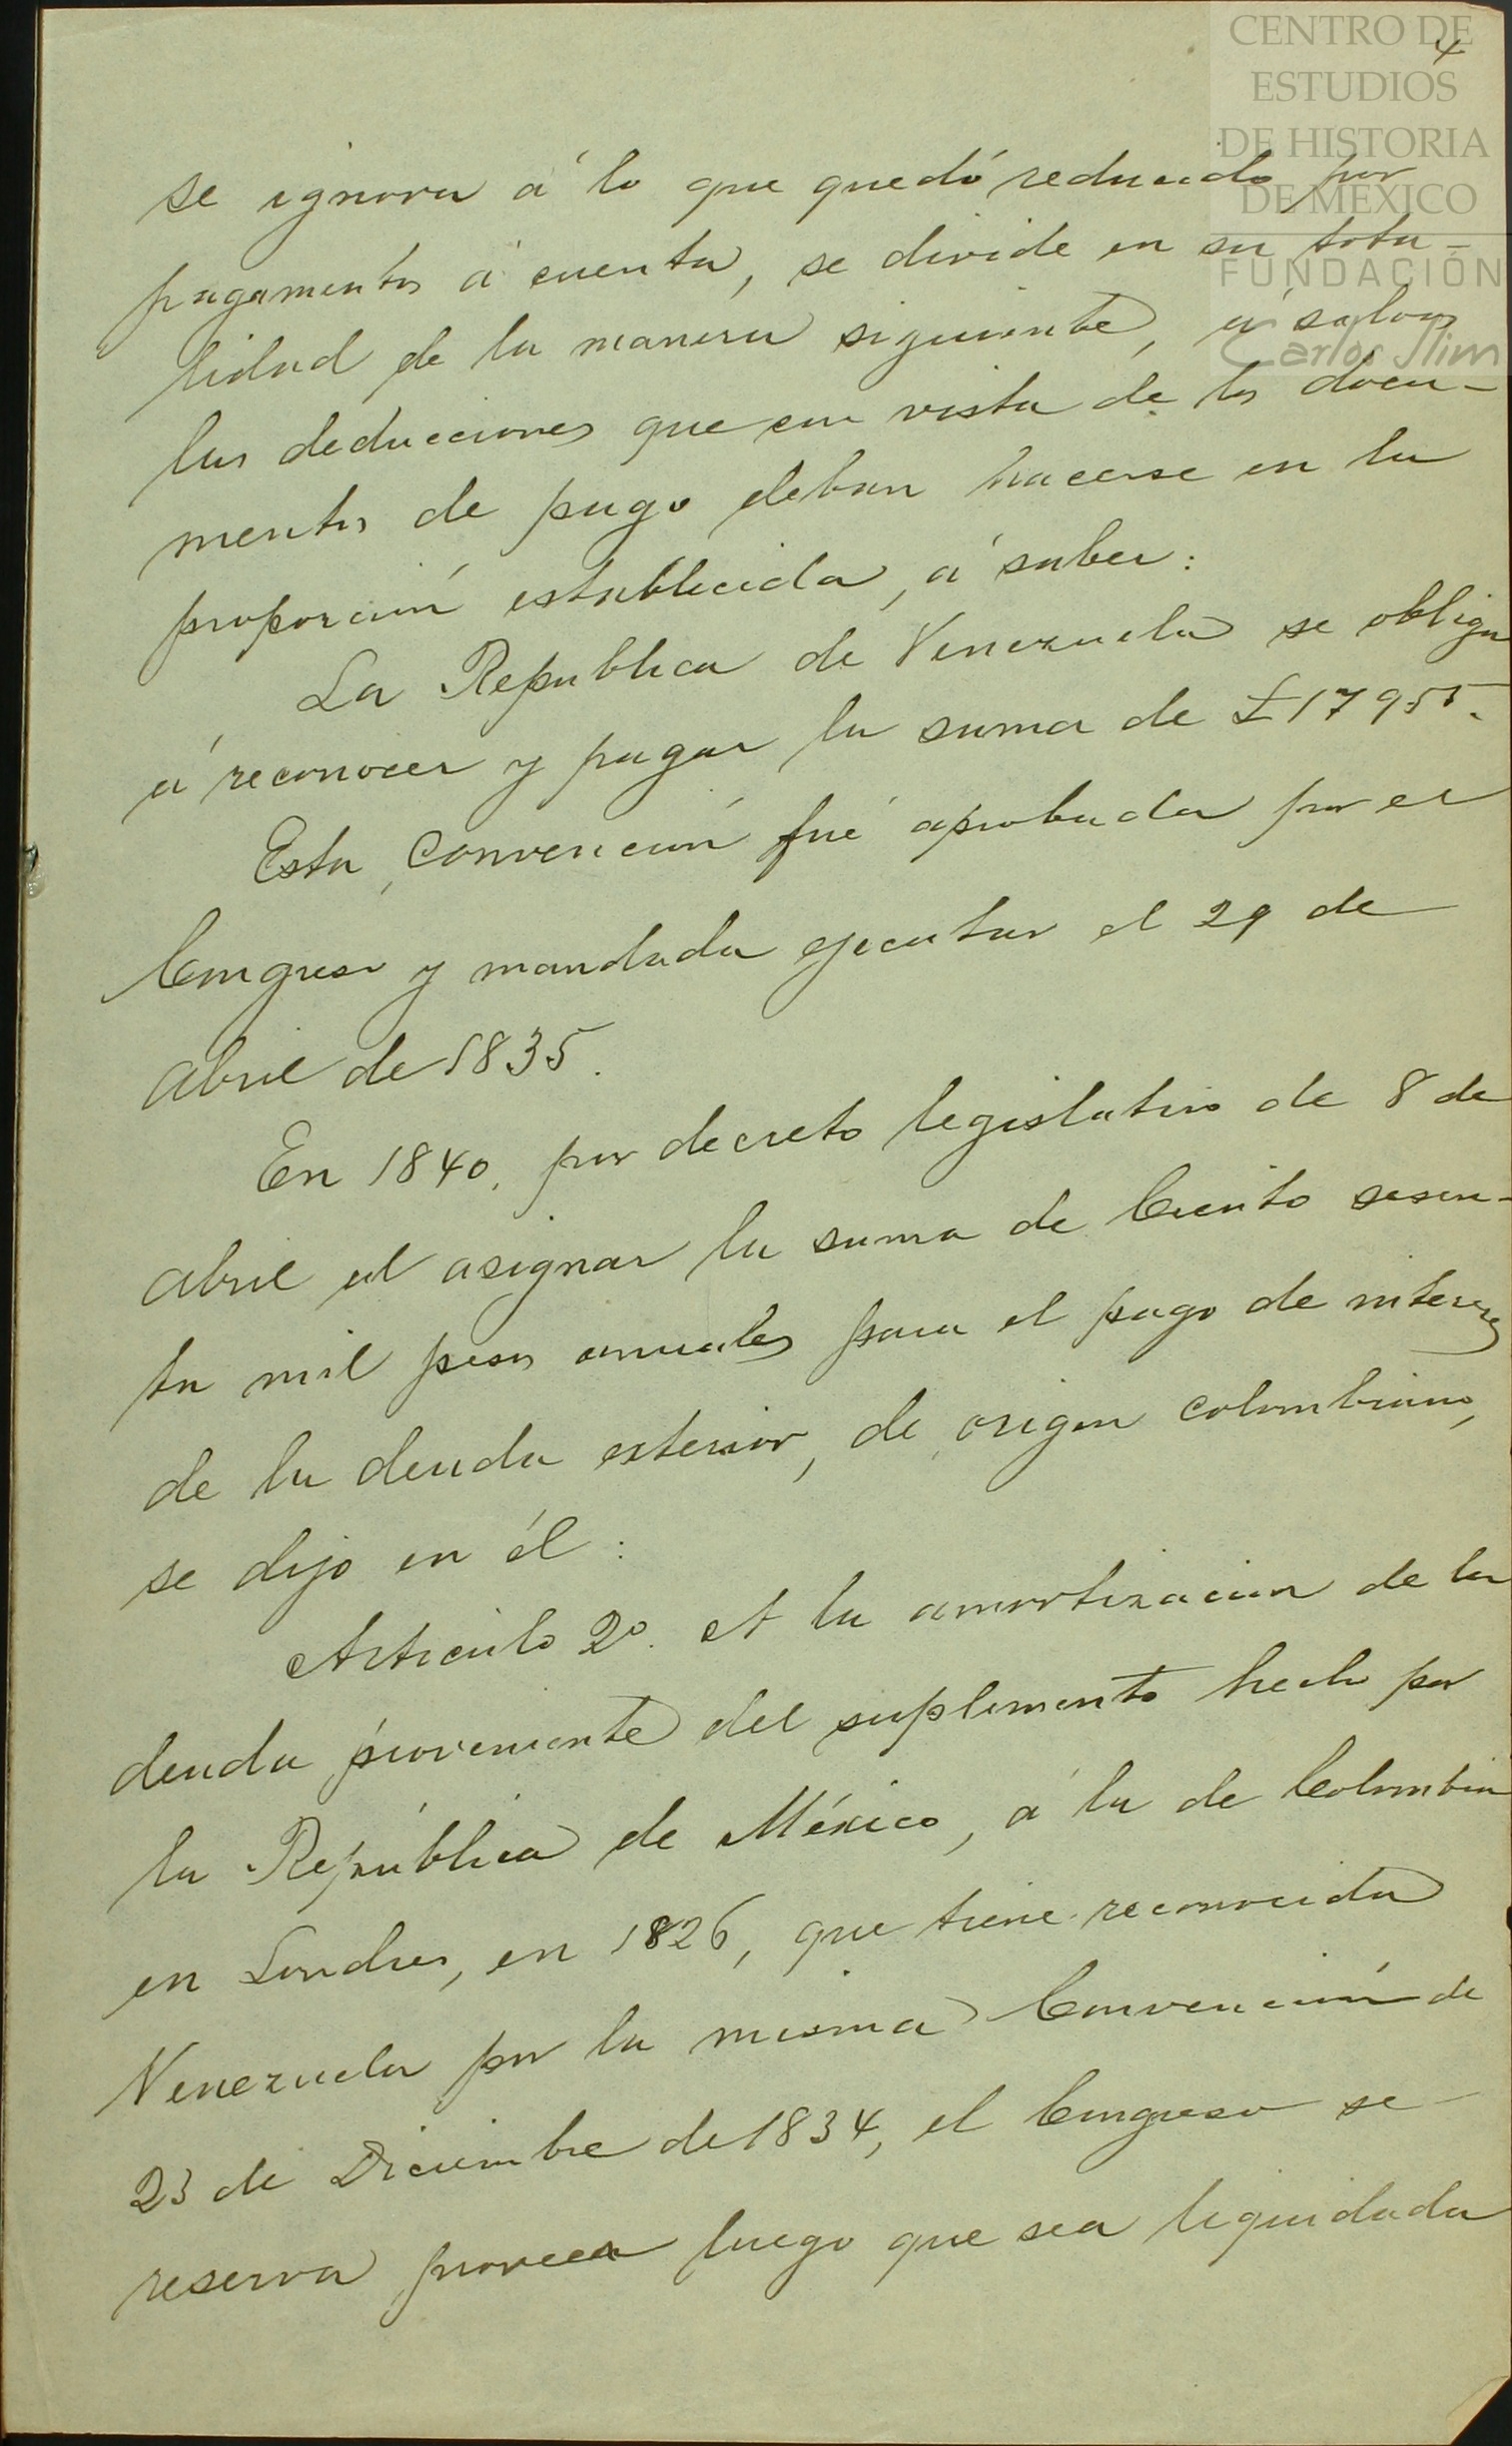 CENTRO DE
ESTUDIOS
DE HISTORIA
DE MÉXICO
FUNDACIÓN
Carlos Slim
4
se ignora á lo que quedó reducido por
pagamentos á cuenta, se divide en su tota-
lidad de la manera siguiente, á salvo
las deducciones que en vista de los docu-
mentos de pago deban hacerse en la
proporción establecida, á saber:
La Republica de Venezuela se obliga
á reconocer y pagar la suma de £17955.
Esta Convención fué aprobada por el
Congreso y mandada ejecutar el 29 de
Abril de 1835.
En 1840, por decreto legislativo de 8 de
Abril al asignar la suma de Ciento sesen-
ta mil pesos anuales para el pago de intereses
de la deuda exterior, de origen colombiano,
se dijo en él:
Artículo 2º. A la amortizacion de la
deuda proveniente del suplemento hecho por
la República de México, á la de Colombia
en Londres, en 1826, que tiene reconocida
Venezuela por la misma Convención de
23 de Diciembre de 1834, el Congreso se
reserva proveer luego que sea liquidada